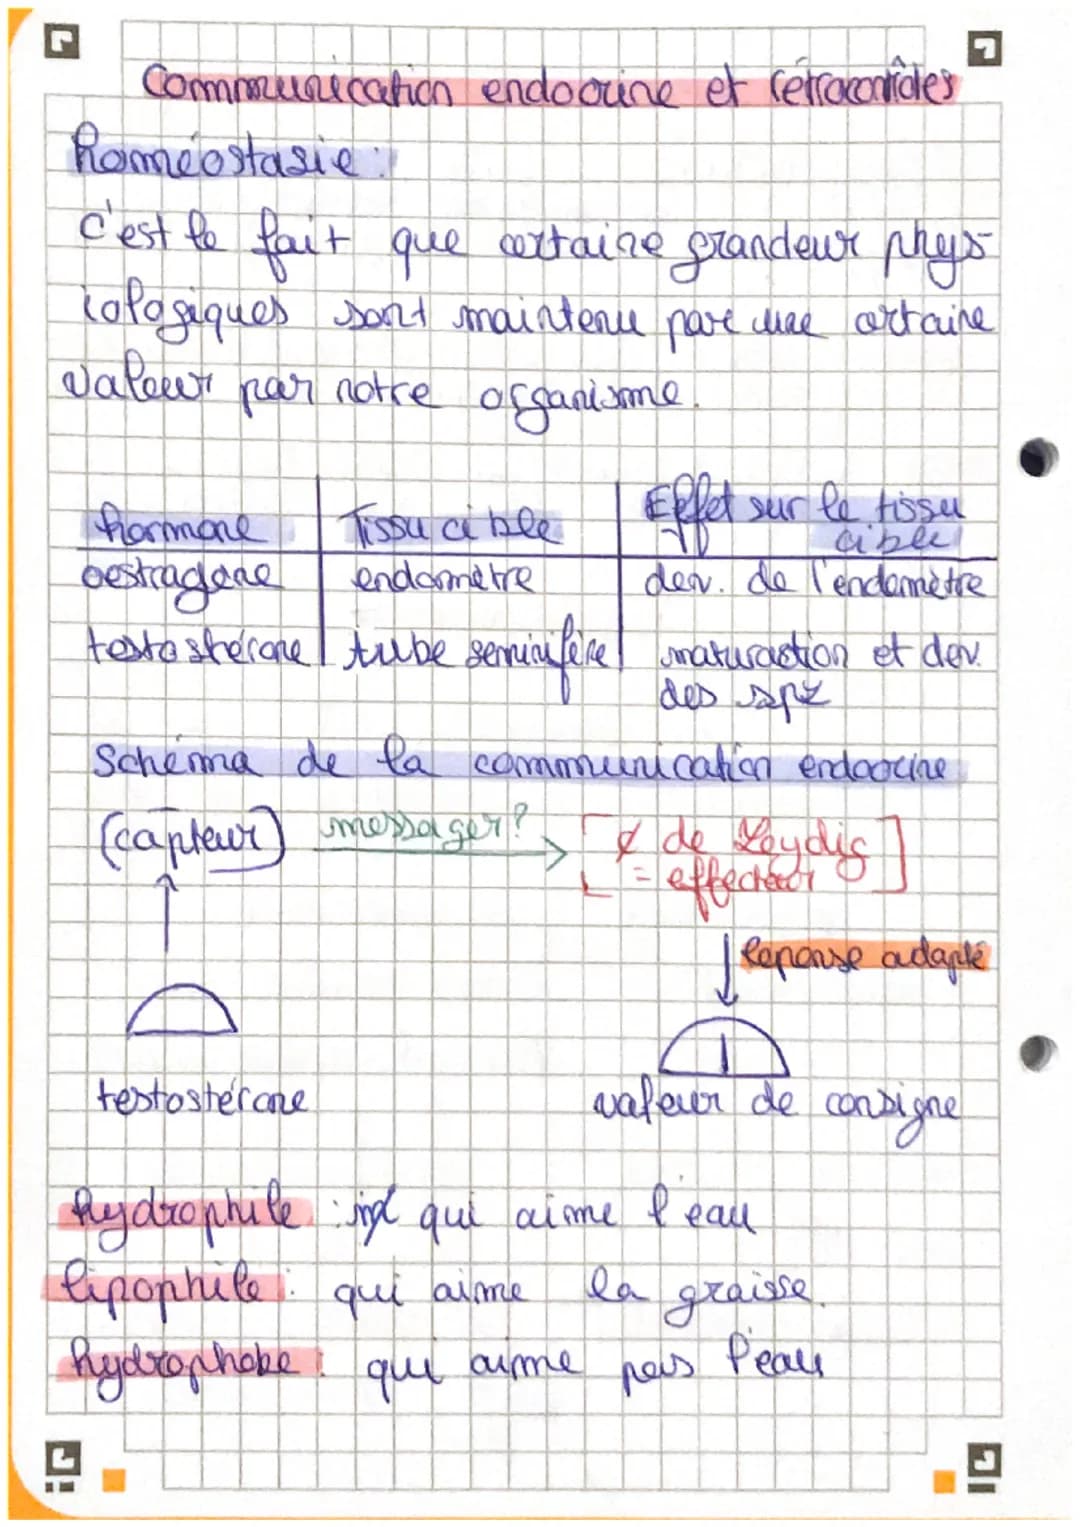 Communication endocrine et rétrocontrôles
homéostasie :
c'est le fait que certaine grandeur phys-
iologiques sont maintenu par une certaine
valeur par notre organisme.
hormone | Tissu cible | Effet sur le tissu cible
oestrogène | endomètre | dev. de l'endomètre
testostérone | tube seminifère | maturastion et dev. des spz
Schéma de la communication endocrine
(capteur) messager? [¢ de Leydig = effecteur]
Reponse adapté
testostérone valeur de consigne
hydrophile : qui aime l'eau
lipophile : qui aime la graisse.
hydrophobe : qui aime pas l'eau